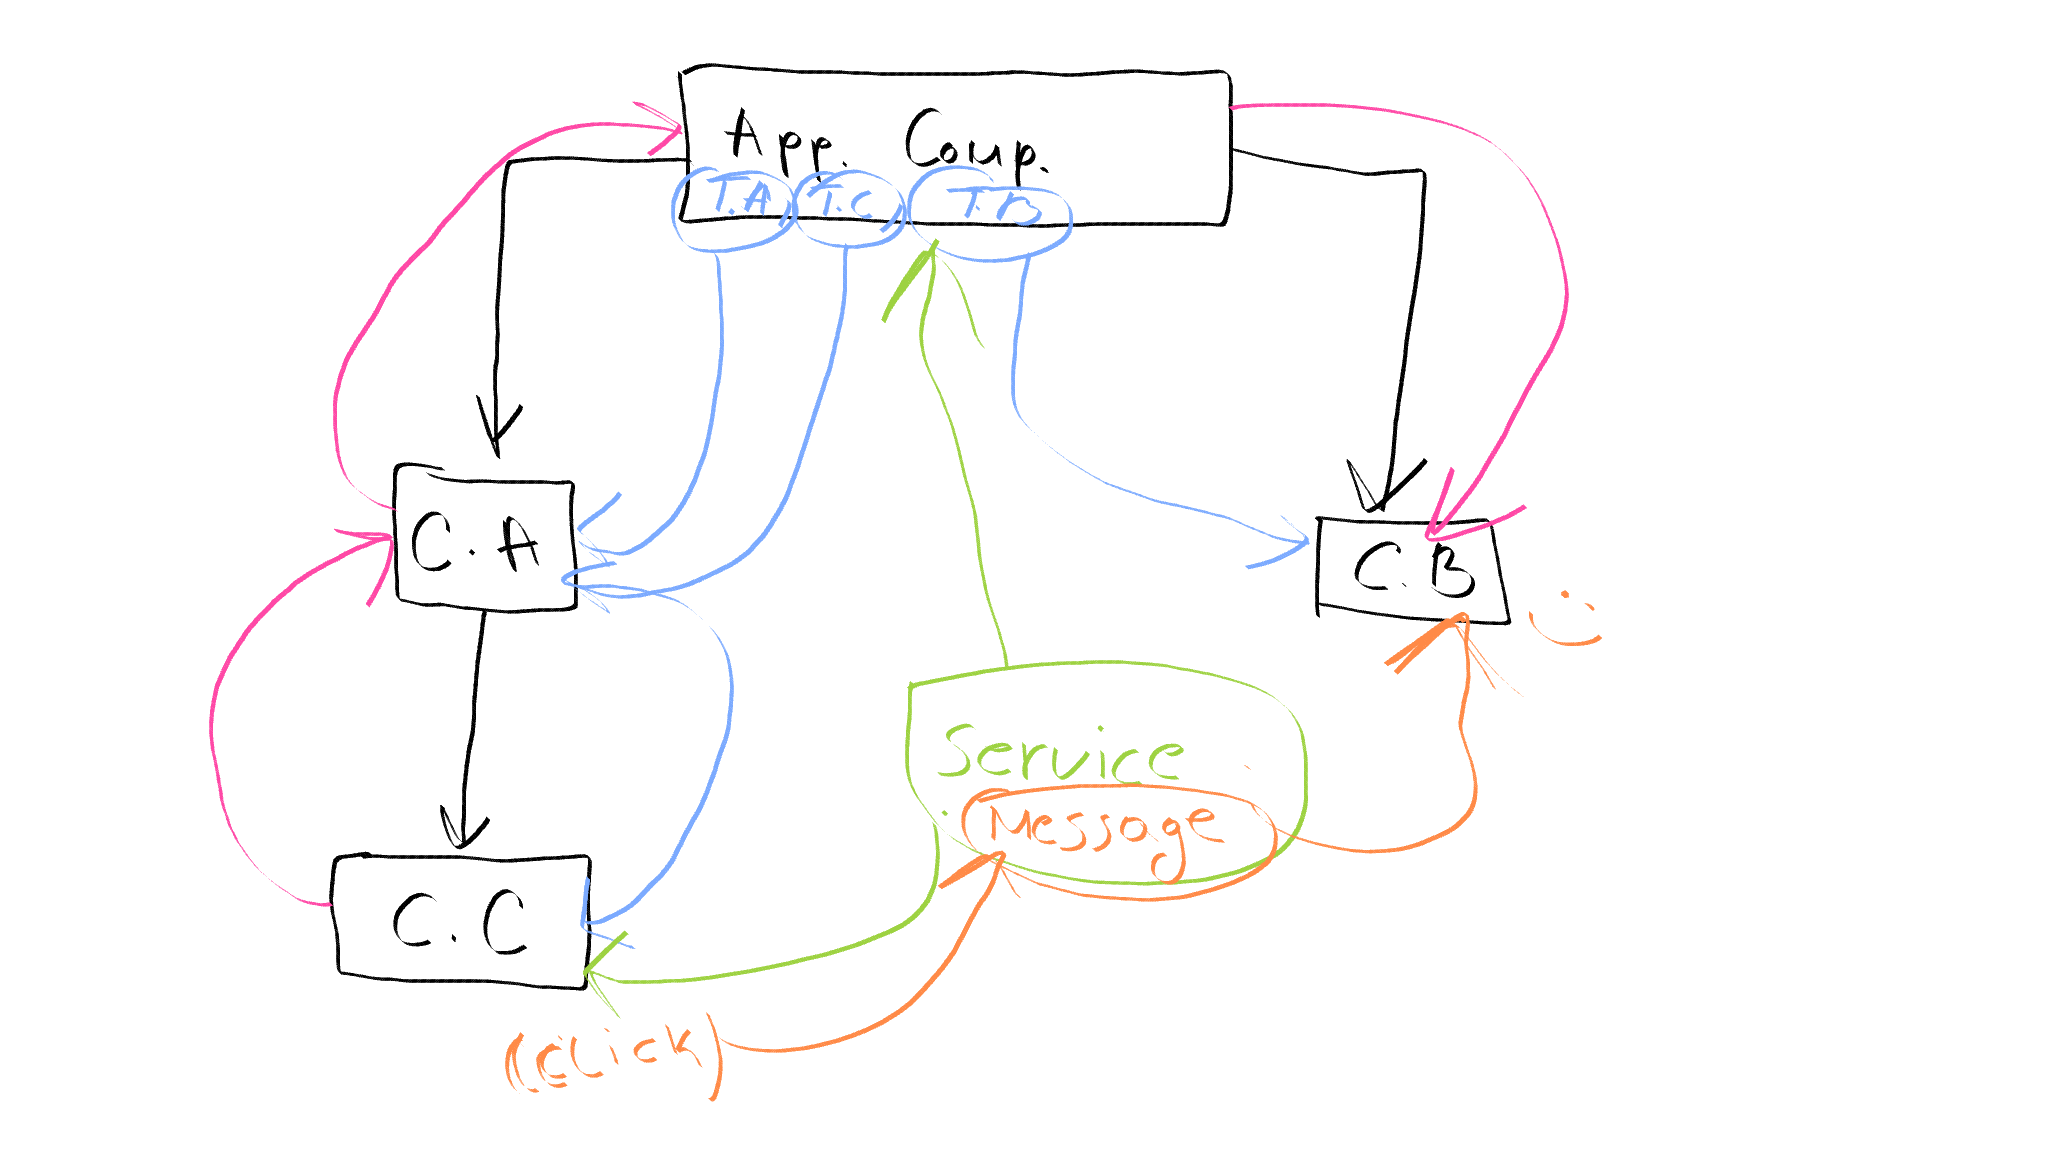 App. Comp.
T.A T.C T.B
C.A
C.B
Service
Message
C.C
((click)